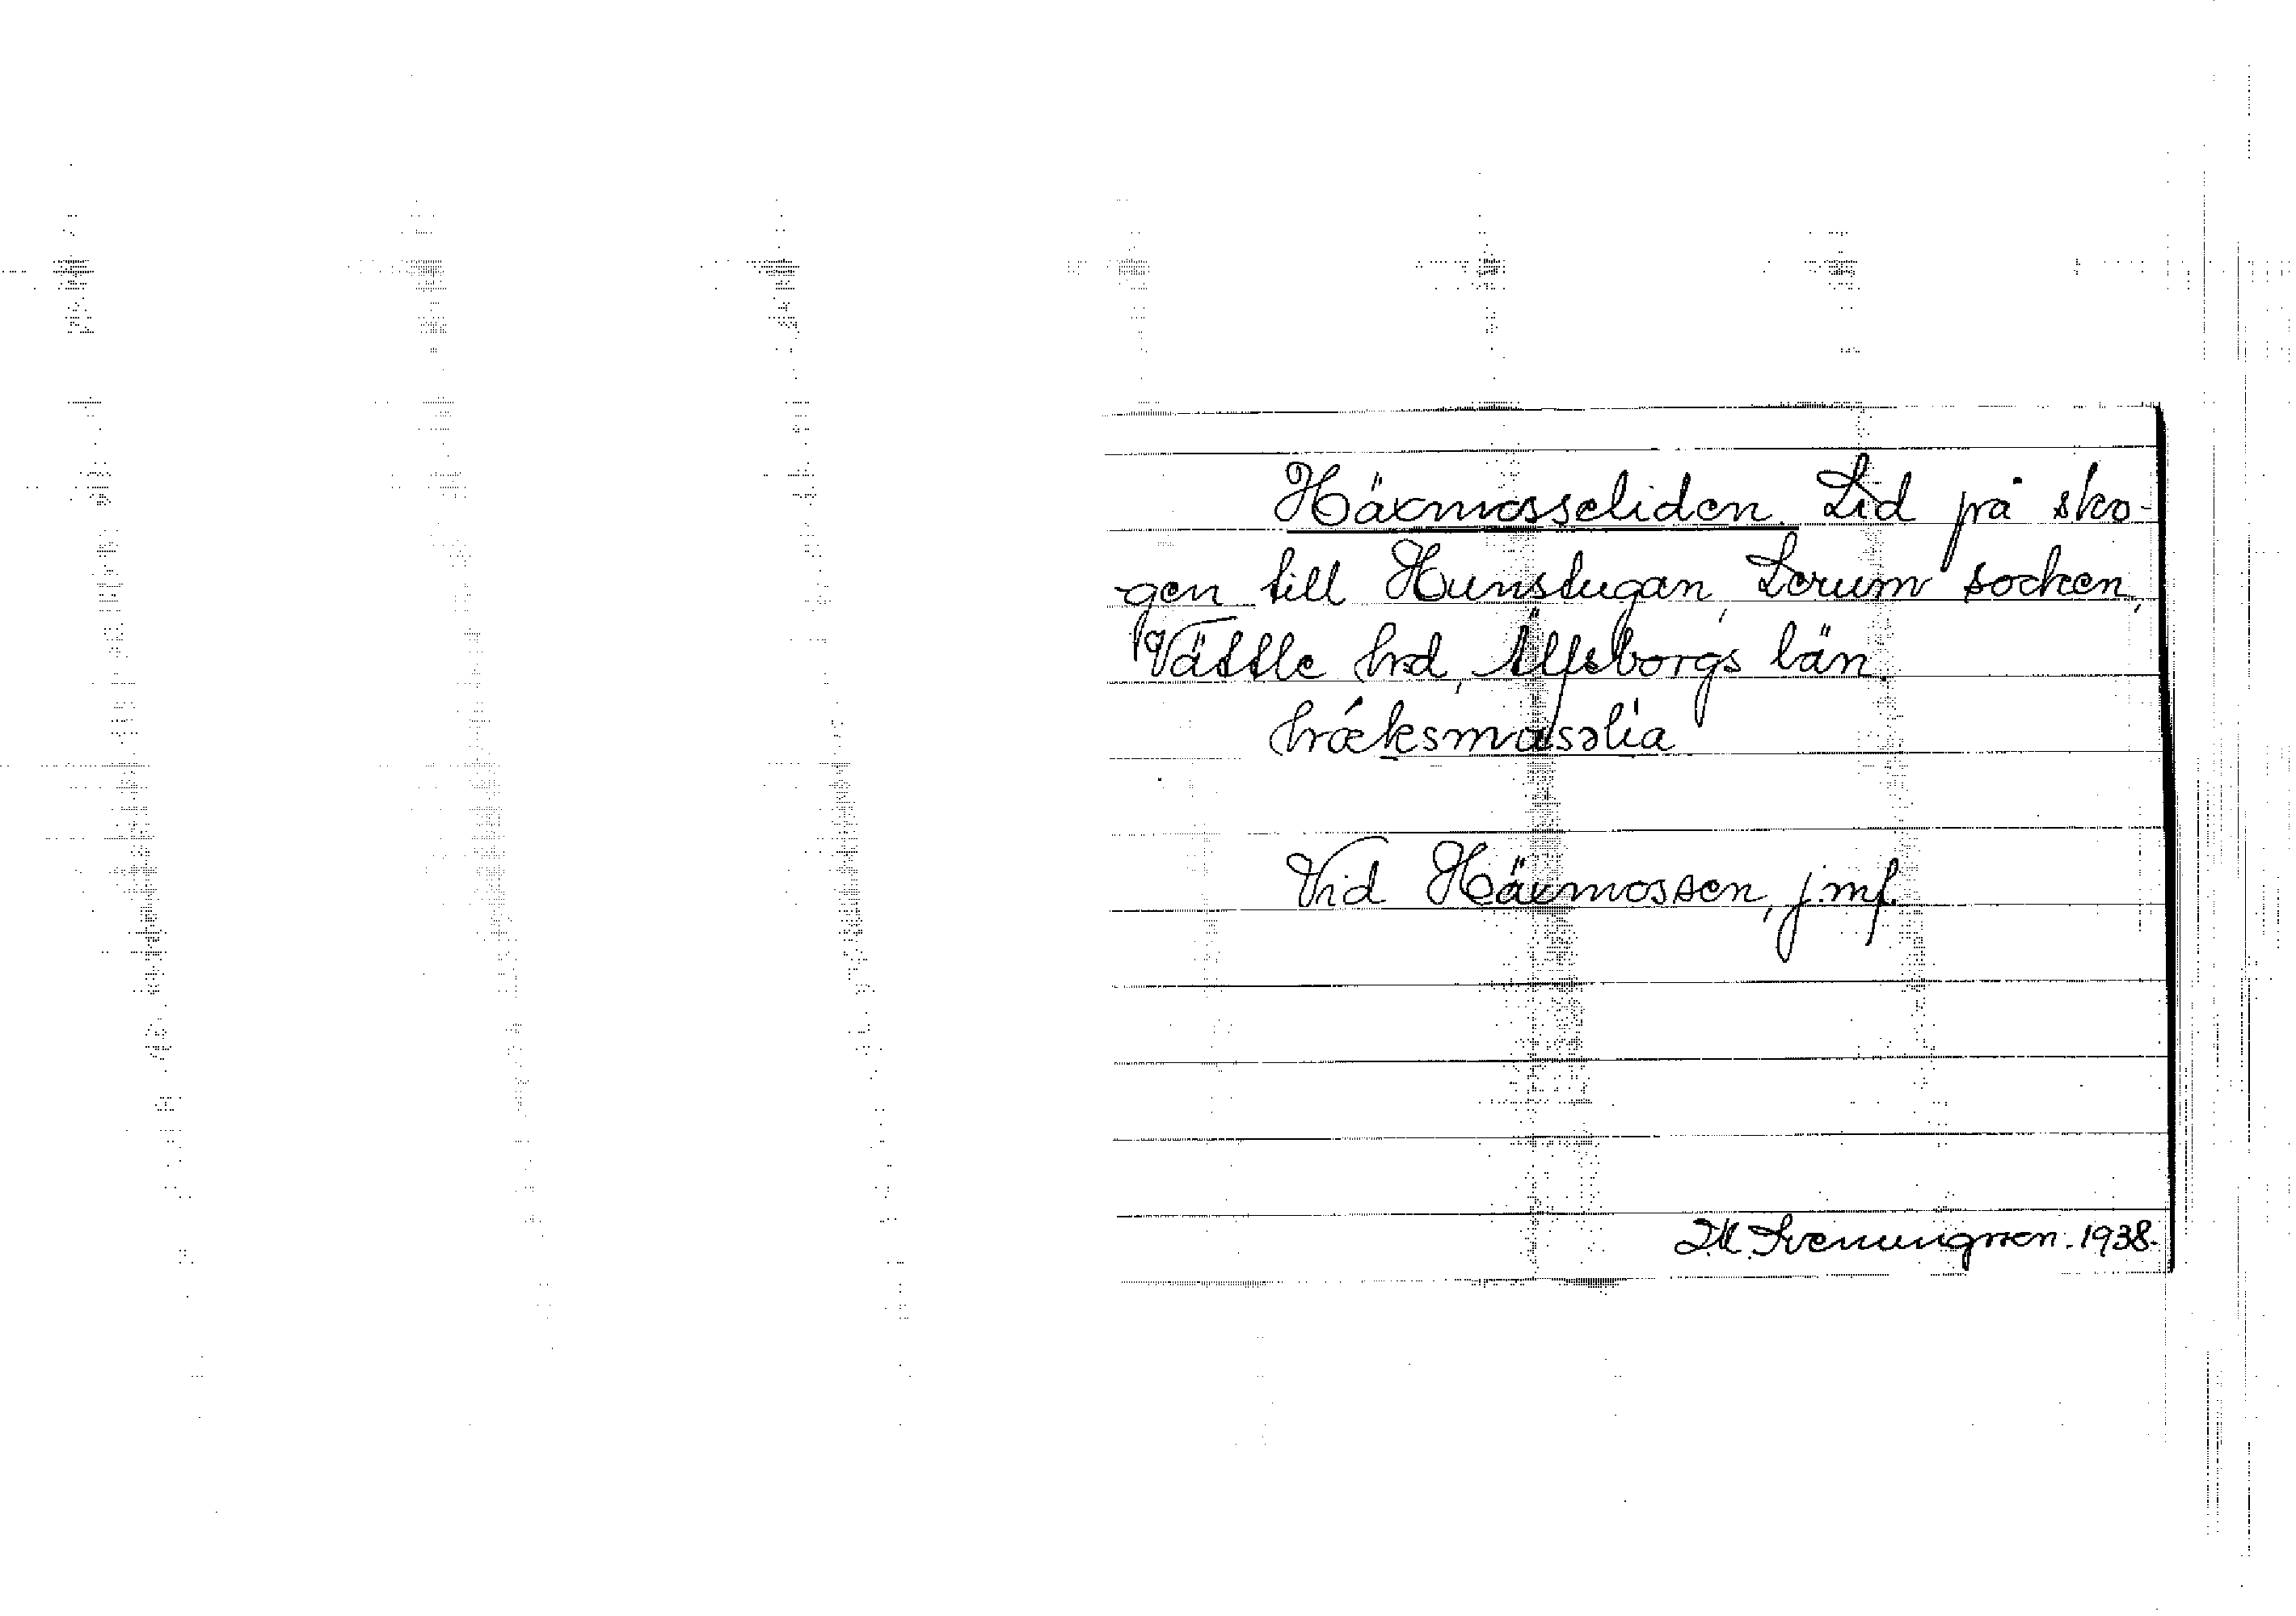 Häxmosseliden. Lid på sko-
gen till Hunstugan, Lerum socken,
Vättle hrd, Älfsborgs län.
hǽksmɷsəlìa
Vid Häxmossen, j.mf.
Svenungsson. 1938.